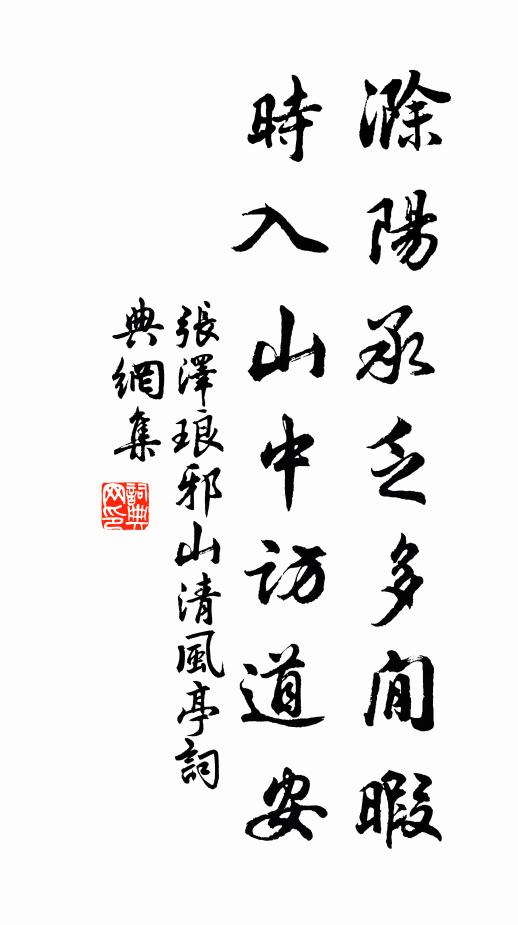 滁陽承乏多閒暇
時入山中訪道安
張澤琅邪山清風亭詞
典網集
詞典網印